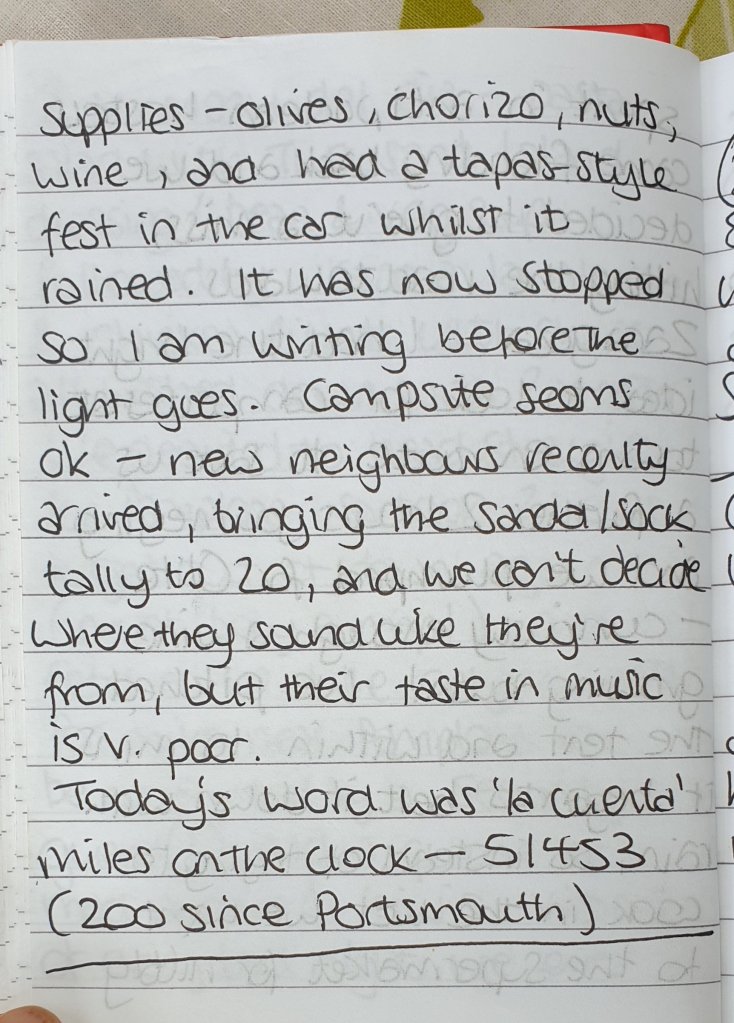 supplies - olives, chorizo, nuts,
wine, and had a tapas-style
fest in the car whilst it
rained. It has now stopped
so I am writing before the
light goes. Campsite seems
ok - new neighbours recently
arrived, bringing the sandal/sock
tally to 20, and we can't decide
where they sound like they're
from, but their taste in music
is v. poor.
Today's word was 'la cuenta'
miles on the clock - 51453
(200 since Portsmouth)